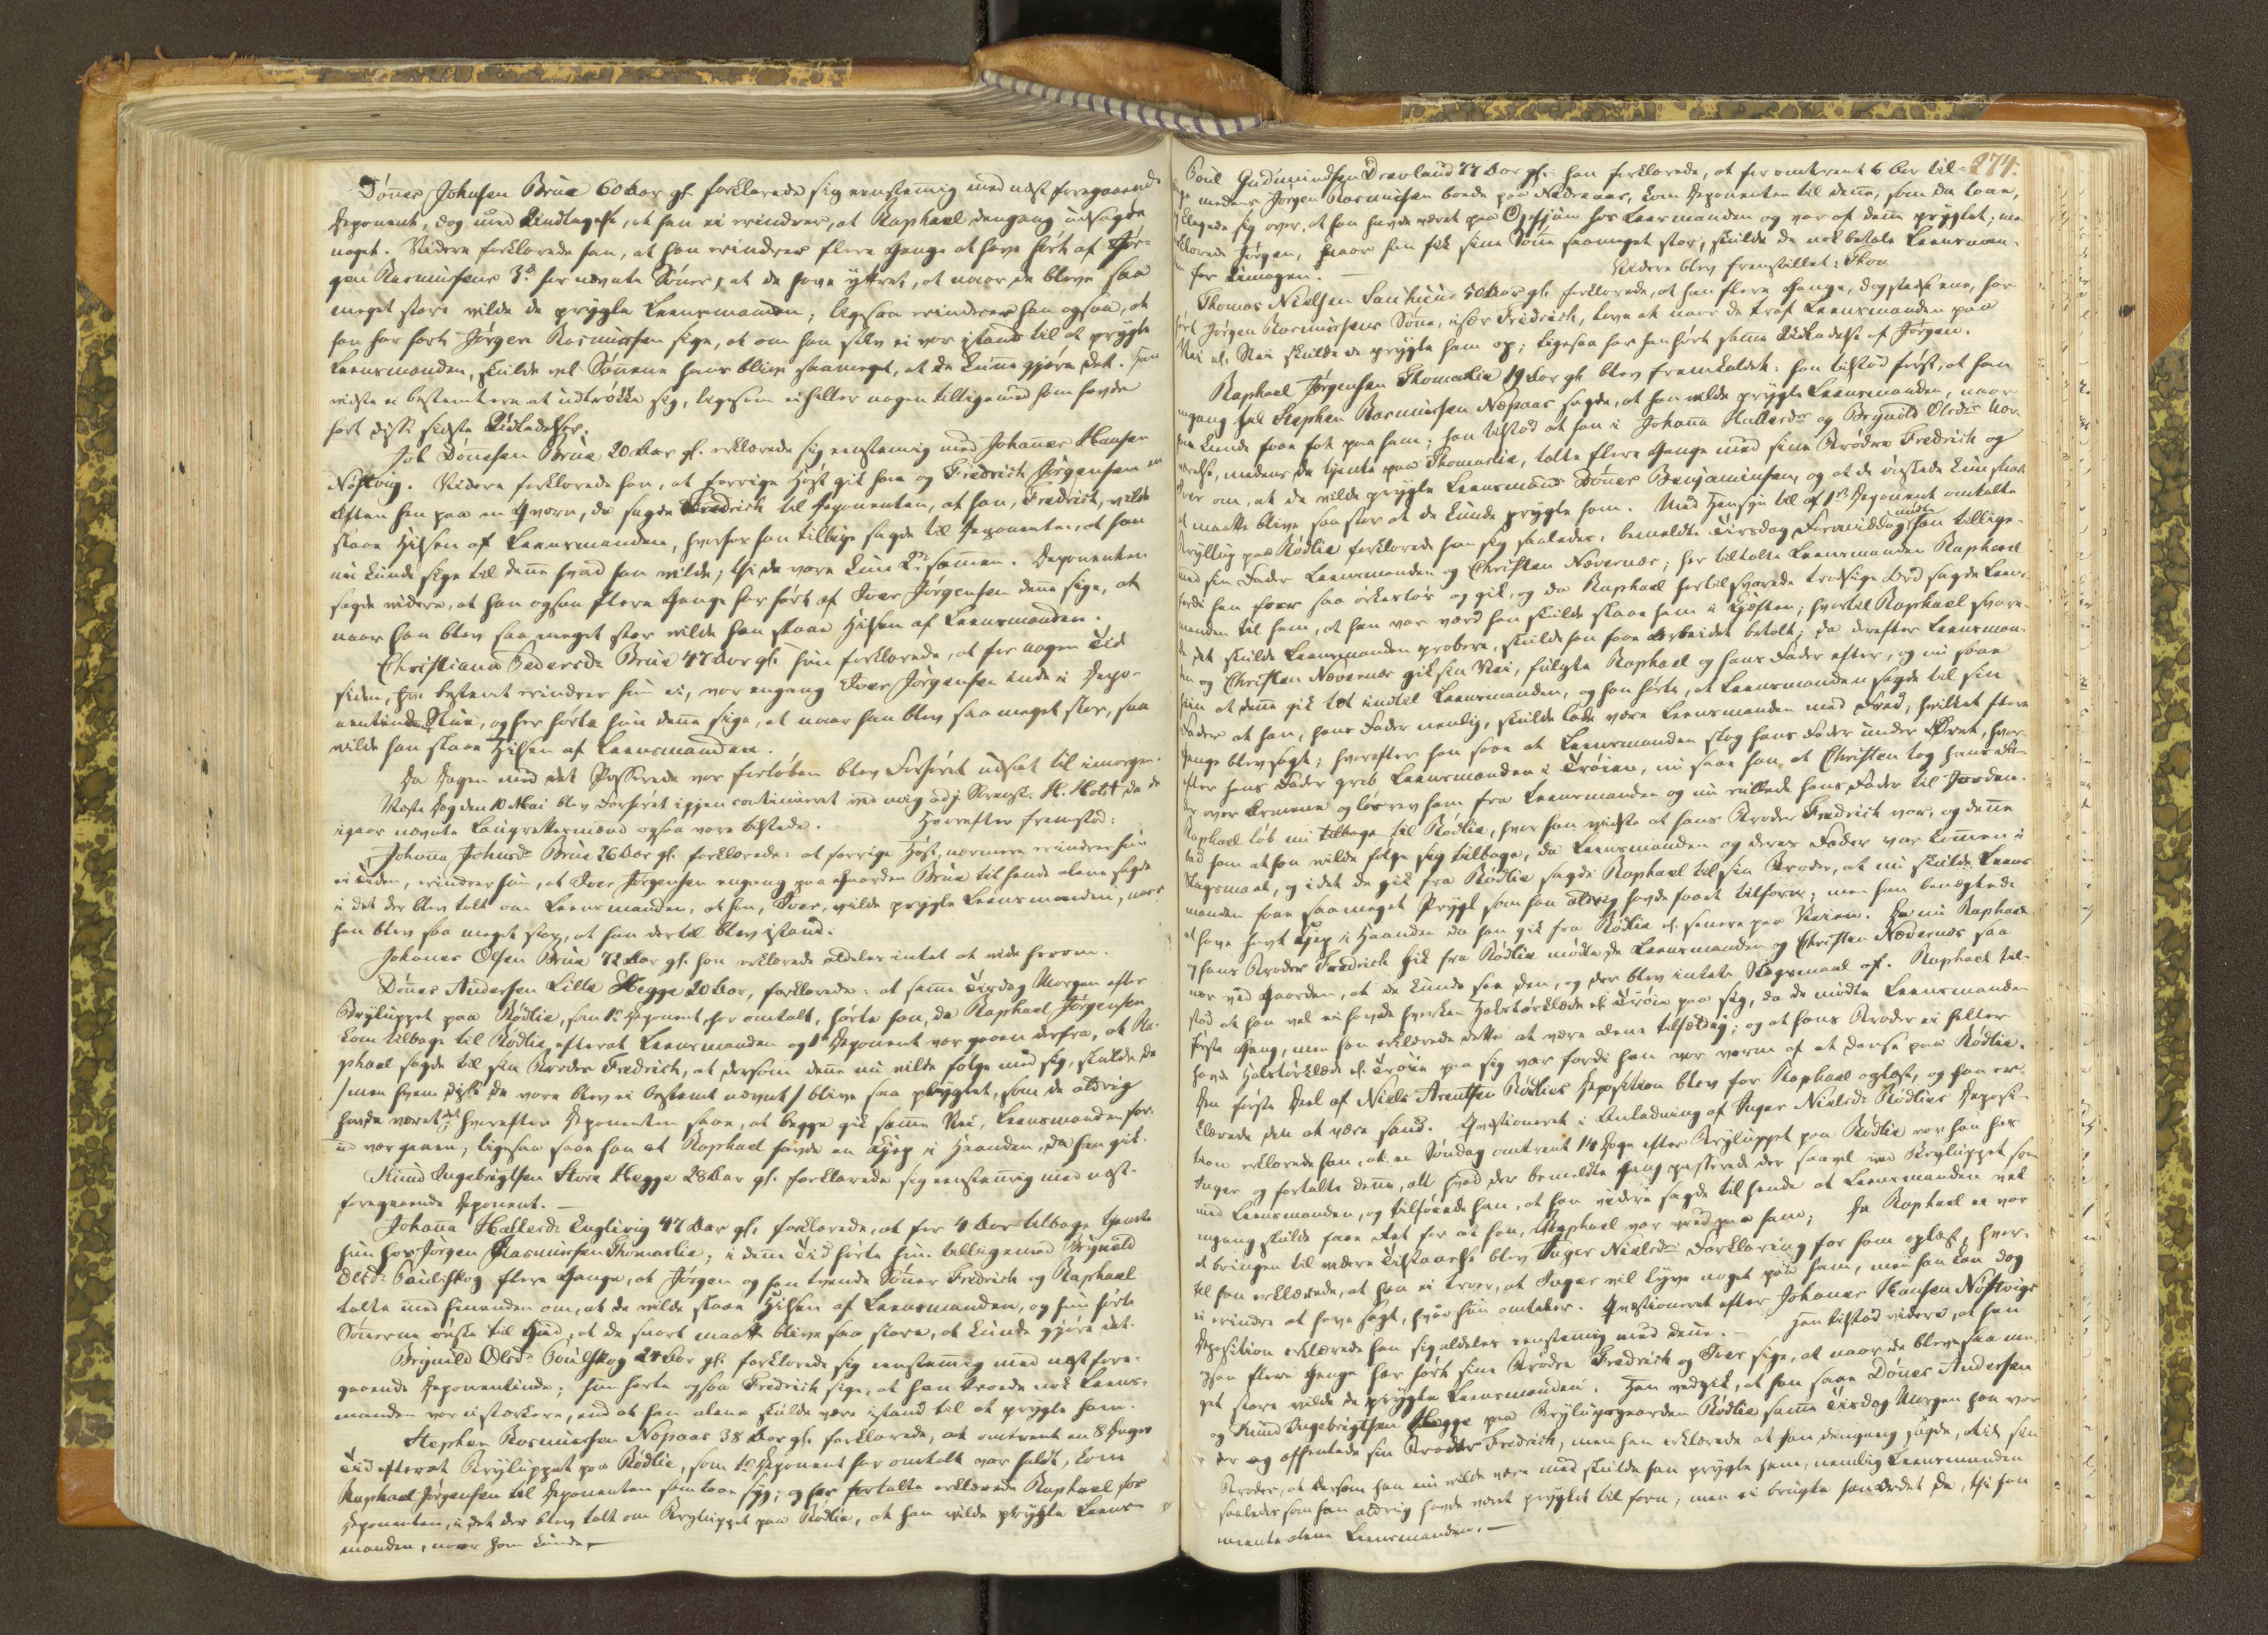 Dónes Johnsen Brue 60 Aar gl. forklarede sig eenstemig med næst foregaaende
Deponent, dog med Undtagelse, at han ei erindrer, at Raphael dengang udsagde
noget. Videre forklarede han, at han erindrer flere Gange at have hørt af Jør-
gen Rasmussens 3de her nævnte Sóner, at de have yttret, at naar de bleve saa
meget store vilde de prygle Leensmanden; ligesaa erindrer han ogsaa, at
han har hørt Jørgen Rasmussen sige, at om han selv ei var istand til at prygle
Leensmanden, skulde vel Sónnene hans blive saameget, at de kunne gjøre det. Han
vidste ei bestemtere at udtrykke sig, ligesom ei heller nogen tilligemed ham havde
hørt disse sidste Udladelser.
Job Dónesen Brue 20 Aar gl. erklærede sig eenstemig med Johannes Hansen
Nóstvig. Videre forklarede han, at forrige Høst gik han og Friedrich Jørgensen en
Aften hen paa en Qværn, da sagde Fredrich til Deponenten, at han, Fredrich, vilde
slaae Hilsen af Leensmanden, hvorfor han tillige sagde til Deponenten, at han
nu kunde sige til denne hvad han vilde; thi de vare kun 2de sammen. Deponenten
sagde videre, at han ogsaa flere Gange har hørt af Iver Jørgensen denne sige, at
naar han blev saa meget stor vilde han slaae Hilsen af Leensmanden.
Christiana Pedersd. Brue 47 Aar gl. hun forklarede, at for nogen Tid
siden, hvor bestemt erindrer hun ei, var engang Iver Jørgensen inde i Depo-
nentindens Stue, og her hørte hun denne sige, at naar han blev saa meget stor, saa
vilde han slaae Hilsen af Leensmanden.
Da Dagen med det Passerede var forløben blev Forhøret udsat til imorgen.
Næste Dag den 10 Mai blev Forhøret igjen continueret ved mig adj. Skrens. H. Holst da de
igaar nævnte Laugrettesmænd ogsaa vare tilstede. – Hvorefter fremstod:
Johanna Johnsd. Brue 26 Aar gl. forklarede: at forrige Høst, nærmere erindrer hun
ei Tiden, erindrer hun, at Iver Jørgensen engang paa Gaarden Brue til hende alene sagde
i det der blev talt om Leensmanden, at han, Iver, vilde prygle Leensmanden, naar
han blev saa meget stor, at han dertil blev istand.
Johannes Olsen Brue 72 Aar gl. han erklærede aldeles intet at vide herom.
Dónes Andersen Lille Hegge 20 Aar, forklarede: at samme Tirsdag Morgen efter
Brylluppet paa Rødlie, som 1ste Deponent har omtalt, hørte han, da Raphael Jørgensen
kom tilbage til Rødlie efterat Leensmanden og 1ste Deponent var gaaen derfra, at Ra-
phael sagde til sin Broder Fredrich, at dersom denne nu vilde følge med sig, skulde de
/men hvem disse de vare blev ei bestemt nævnt/ blive saa pryglet, som de aldrig
havde været det, hvorefter Deponenten saae, at begge gik samme Vei, Leensmanden for-
ud var gaaen, ligesaa saae han at Raphael havde en Kjep i Haanden, da han gik.
Knud Ingebrigtsen Store Hegge 28 Aar gl. forklarede sig eenstemig med næst-
foregaaende Deponent. –
Johanna Hallesd. Englivig 47 Aar gl. forklarede, at for 4 Aar tilbage tjente
hun hos Jørgen Rasmussen Thomaslie; i denne Tid hørte hun tilligemed Brynild
Olsd. Paulskog flere Gange, at Jørgen og han tvende Sønner Fredrich og Raphael
talte med hinanden om, at de vilde slaae Hilsen af Leensmanden, og hun hørte
Sønnerne ønske til Gud, at de snart maatte blive saa store, at kunde gjøre det.
Brynild Olsd. Paulskog 24 Aar gl. forklarede sig eenstemmig med næst fore-
gaaende Deponentinde; hun hørte ogsaa Fredrich sige, at han troede nok Leens-
manden var ei stærkere, end at han alene skulde være istand til at prygle ham.
Stephen Rasmussen Næpaas 38 Aar gl. forklarede, at omtrent en 8 Dages
Tid efterat Brylluppet paa Rødlie, som 1ste Deponent har omtalt var holdt, kom
Raphael Jørgensen til Deponenten som laae syg; og her fortalte erklærede Raphael for
Deponenten, i det der blev talt om Brylluppet paa Rødlie, at han vilde prygle Leens-
manden, naar han kunde. –
274.
Poul Gudmundsen Dravland 77 Aar gl. han forklarede, at for omtrent 6 Aar til-
medens Jørgen Rasmussen boede paa Nedreaas, kom Deponenten til denne, som da laae,
klagede sig over, at han havde været paa Opsjøn hos Leensmanden og var af denne pryglet; men
klarede Jørgen, naar han fik sine Sønner saameget stor, skulde de nok betale Leensman-
for Umagen. – Videre blev fremstillet: Thon
Thomas Nielsen 50 Aar gl. forklarede, at han flere Gange, dog stedse ene, har
hørt Jørgen Rasmussens Sønner, især Fredrich, love at naar de traf Leensmanden paa
Vei el. Stie skulde de prygle ham op; ligesaa har han hørt samme Udladelse af Jørgen.
Raphael Jørgensen Thomaslie 19 Aar gl. blev fremkaldet: han tilstod først, at han
engang hos Stephen Rasmussen Næpaas sagde, at han vilde prygle Leensmanden, naar
han kunde faae fat paa ham; han tilstod at han i Johanna Hallesdr. og Brynild Olsdrs. Nær-
værelse, medens de tjente paa Thomaslie, talte flere Gange med sine Brødre Fredrich og
Iver om, at de vilde prygle Leensmand Dónes Benjaminsen, og at de ønskede kun snart
at maatte blive saa stor at de kunde prygle ham. Med Hensyn til af 1ste Deponent omtalte
Bryllup paa Rødlie forklarede han sig saaledes: bemeldte Tirsdag Formiddag mødte han tillige-
med sin Fader Leensmanden og Christen Nævernes; her tiltalte Leensmanden Raphael
fordi han foer saa ørkesløs og gik, og da Raphael hertil svarede trodsige Ord sagde Leens-
manden til ham, at han var værd han skulde slaae ham i Kjæften; hvortil Raphael svare-
de det skulde Leensmanden probere, skulde han faae Arbeidet betalt; da derefter Leensman-
den og Christen Nævernes gik sin Vei, fulgte Raphael og hans Fader efter, og nu saae
han at denne gik tæt indtil Leensmanden, og han hørte, at Leensmanden sagde til sin
Fader at han, hans Fader nemlig, skulde lade være Leensmanden med Fred, hvilket flere
Gange blev sagt; hvorefter han saae at Leensmanden slog hans Fader under Øret, hvor-
efter hans Fader greb Leensmanden i Trøien, nu saae han at Christen tog hans Fa-
der over Armene og løsrev ham fra Leensmanden og nu rullede hans Fader til Jorden.
Raphael løb nu tilbage til Rødlie, hvor han vidste at hans Broder Fredrich var, og denne
bad han at han vilde følge sig tilbage, da Leensmanden og deres Fader var kommen i
Slagsmaal, og idet de gik fra Rødlie sagde Raphael til sin Broder, at nu skulde Leens-
manden faae saameget Prygl som han aldrig havde faaet tilforn; men han benægtede
at have havt Kjep i Haanden da han gik fra Rødlie el. senere paa Veien. Da nu Raphael
og hans Broder Fredrich gik fra Rødlie mødte de Leensmanden og Christen Nævernes saa
nær ved Gaarden, at de kunde see den, og der blev intet Slagsmaal af. Raphael til-
stod at han vel ei havde hverken Halstørklæde el. Trøie paa sig, da de mødte Leensmanden
første Gang, men han erklærede dette at være alene tilfældig; og at hans Broder ei heller
havde Halstørklæde el. Trøie paa sig var fordi han var varm af at danse paa Rødlie.
Den første Deel af Niels Arentsen Rødlies Deposition blev for Raphael oplæst, og han er-
klærede den at være sand. Qvæstioneret i Anledning af Inger Nielsdr. Rødlies Deposi-
tion erklærede han, at en Søndag omtrent 14 Dage efter Brylluppet paa Rødlie var han hos
Inger og fortalte denne, alt hvad der bemeldte Gang passerede der saavel ved Brylluppet som
med Leensmanden, og tilføiede han, at han videre sagde til hende at Leensmanden vel
engang skulde faae det for at han, Raphael var vred paa ham; da Raphael ei var
at bringen til videre Tilstaaelse blev Inger Nielsdr. Forklaring for ham oplæst, hver-
til han erklærede, at han ei troer, at Inger vil lyve noget paa ham, men han kan dog
ei erindre at have sagt, hvad hun omtaler. Qvæstioneret efter Johannes Hansen Nøstvigs
Deposition erklærede han sig aldeles eenstemmig med denne. – Han tilstod videre, at han
ogsaa flere Gange har hørt sine Brødre Fredrich og Iver sige, at naar de bleve saa me-
get store vilde de prygle Leensmanden. Han vedgik, at han saae Dónes Andersen
og Knud Ingebrigtsen Hegge paa Bryllupsgaarden Rødlie samme Tirsdag Morgen han var
der og afhentede sin Broder Fredrich, men han erklærede at han dengang sagde, til sin
Broder, at dersom han nu vilde være med skulde han prygle ham, nemlig Leensmanden
saaledes som han aldrig havde været pryglet til forn, men ei brugte han Ordet de, thi han
meente alene Leensmanden. –